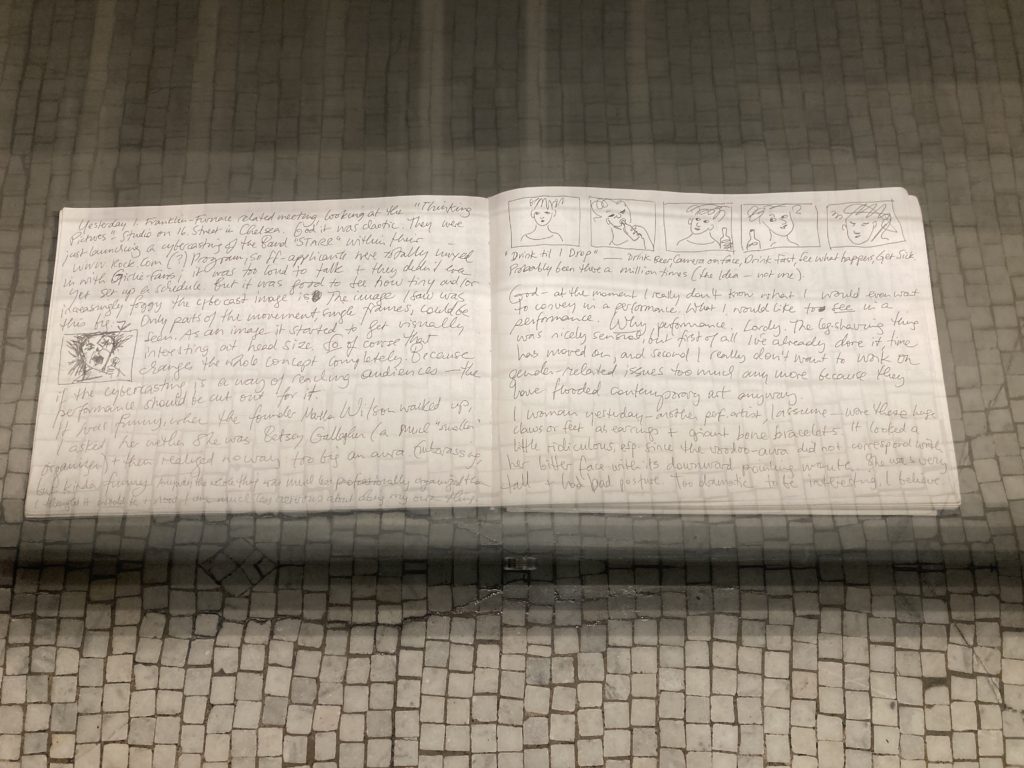 Yesterday 1 Franklin-Furnace related meeting, looking at the "Thinking
Pictures" - Studio on 16 Street in Chelsea. God it was chaotic. They were
just launching a cybercasting of the band "STARE" within their
www.Rock.Com (?) Program, so FF-applicants were totally mixed
in with Girlie-fans, it was too loud to talk + they didn't even
get set up a schedule. But it was good to see how tiny and/or
increasingly foggy the cybercast image is. The image I saw was
this big Only parts of the movement, single frames, could be
seen. As an image it started to get visually
interesting at head size. So of course that
changes the whole concept completely. Because
if the cybercasting is a way of reaching audiences — the
performance should be cut out for it.
It was funny, when the founder Martha Wilson walked up,
asked her whether she was Betsey Gallagher (a much "smaller"
organizer) + then realized no way too big an aura (embarassing,
but kinda funny
"Drink til I Drop" — Drink Beer, Camera on face, Drink fast, see what happens, Get Sick
Probably been there a million times (the Idea - not me).
God - at the moment I really don't know what I would even want
to convey in a performance. What I would like to see in a
performance. Why performance. Lordy. The legshaving thing
was nicely sensored, but first of all I've already done it, time
has moved on, and second I really don't want to work on
gender-related issues too much any more because they
have flooded contemporary art anyway.
1 woman yesterday - another perf. artist, I assume - wore these huge
claws or feet as earrings + giant bone bracelets. It looked a
little ridiculous, esp. since the voodoo-aura did not correspond with
her bitter face with its downward pointing mouth. She was very
tall + had bad posture. Too dramatic to be interesting, I believe.